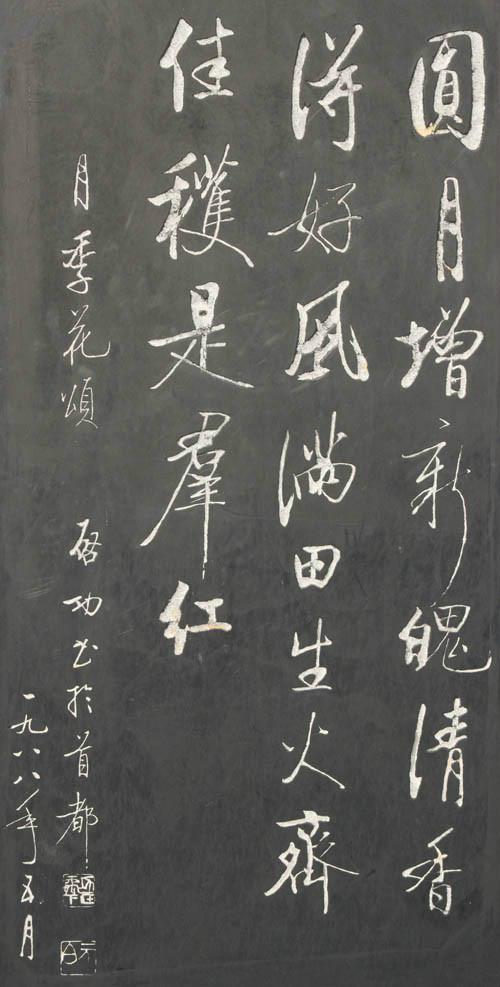 圓月增新魄清香
得好風滿田生火齊
佳穫是羣紅
月季花頌
啓功书於首都
一九八八年五月